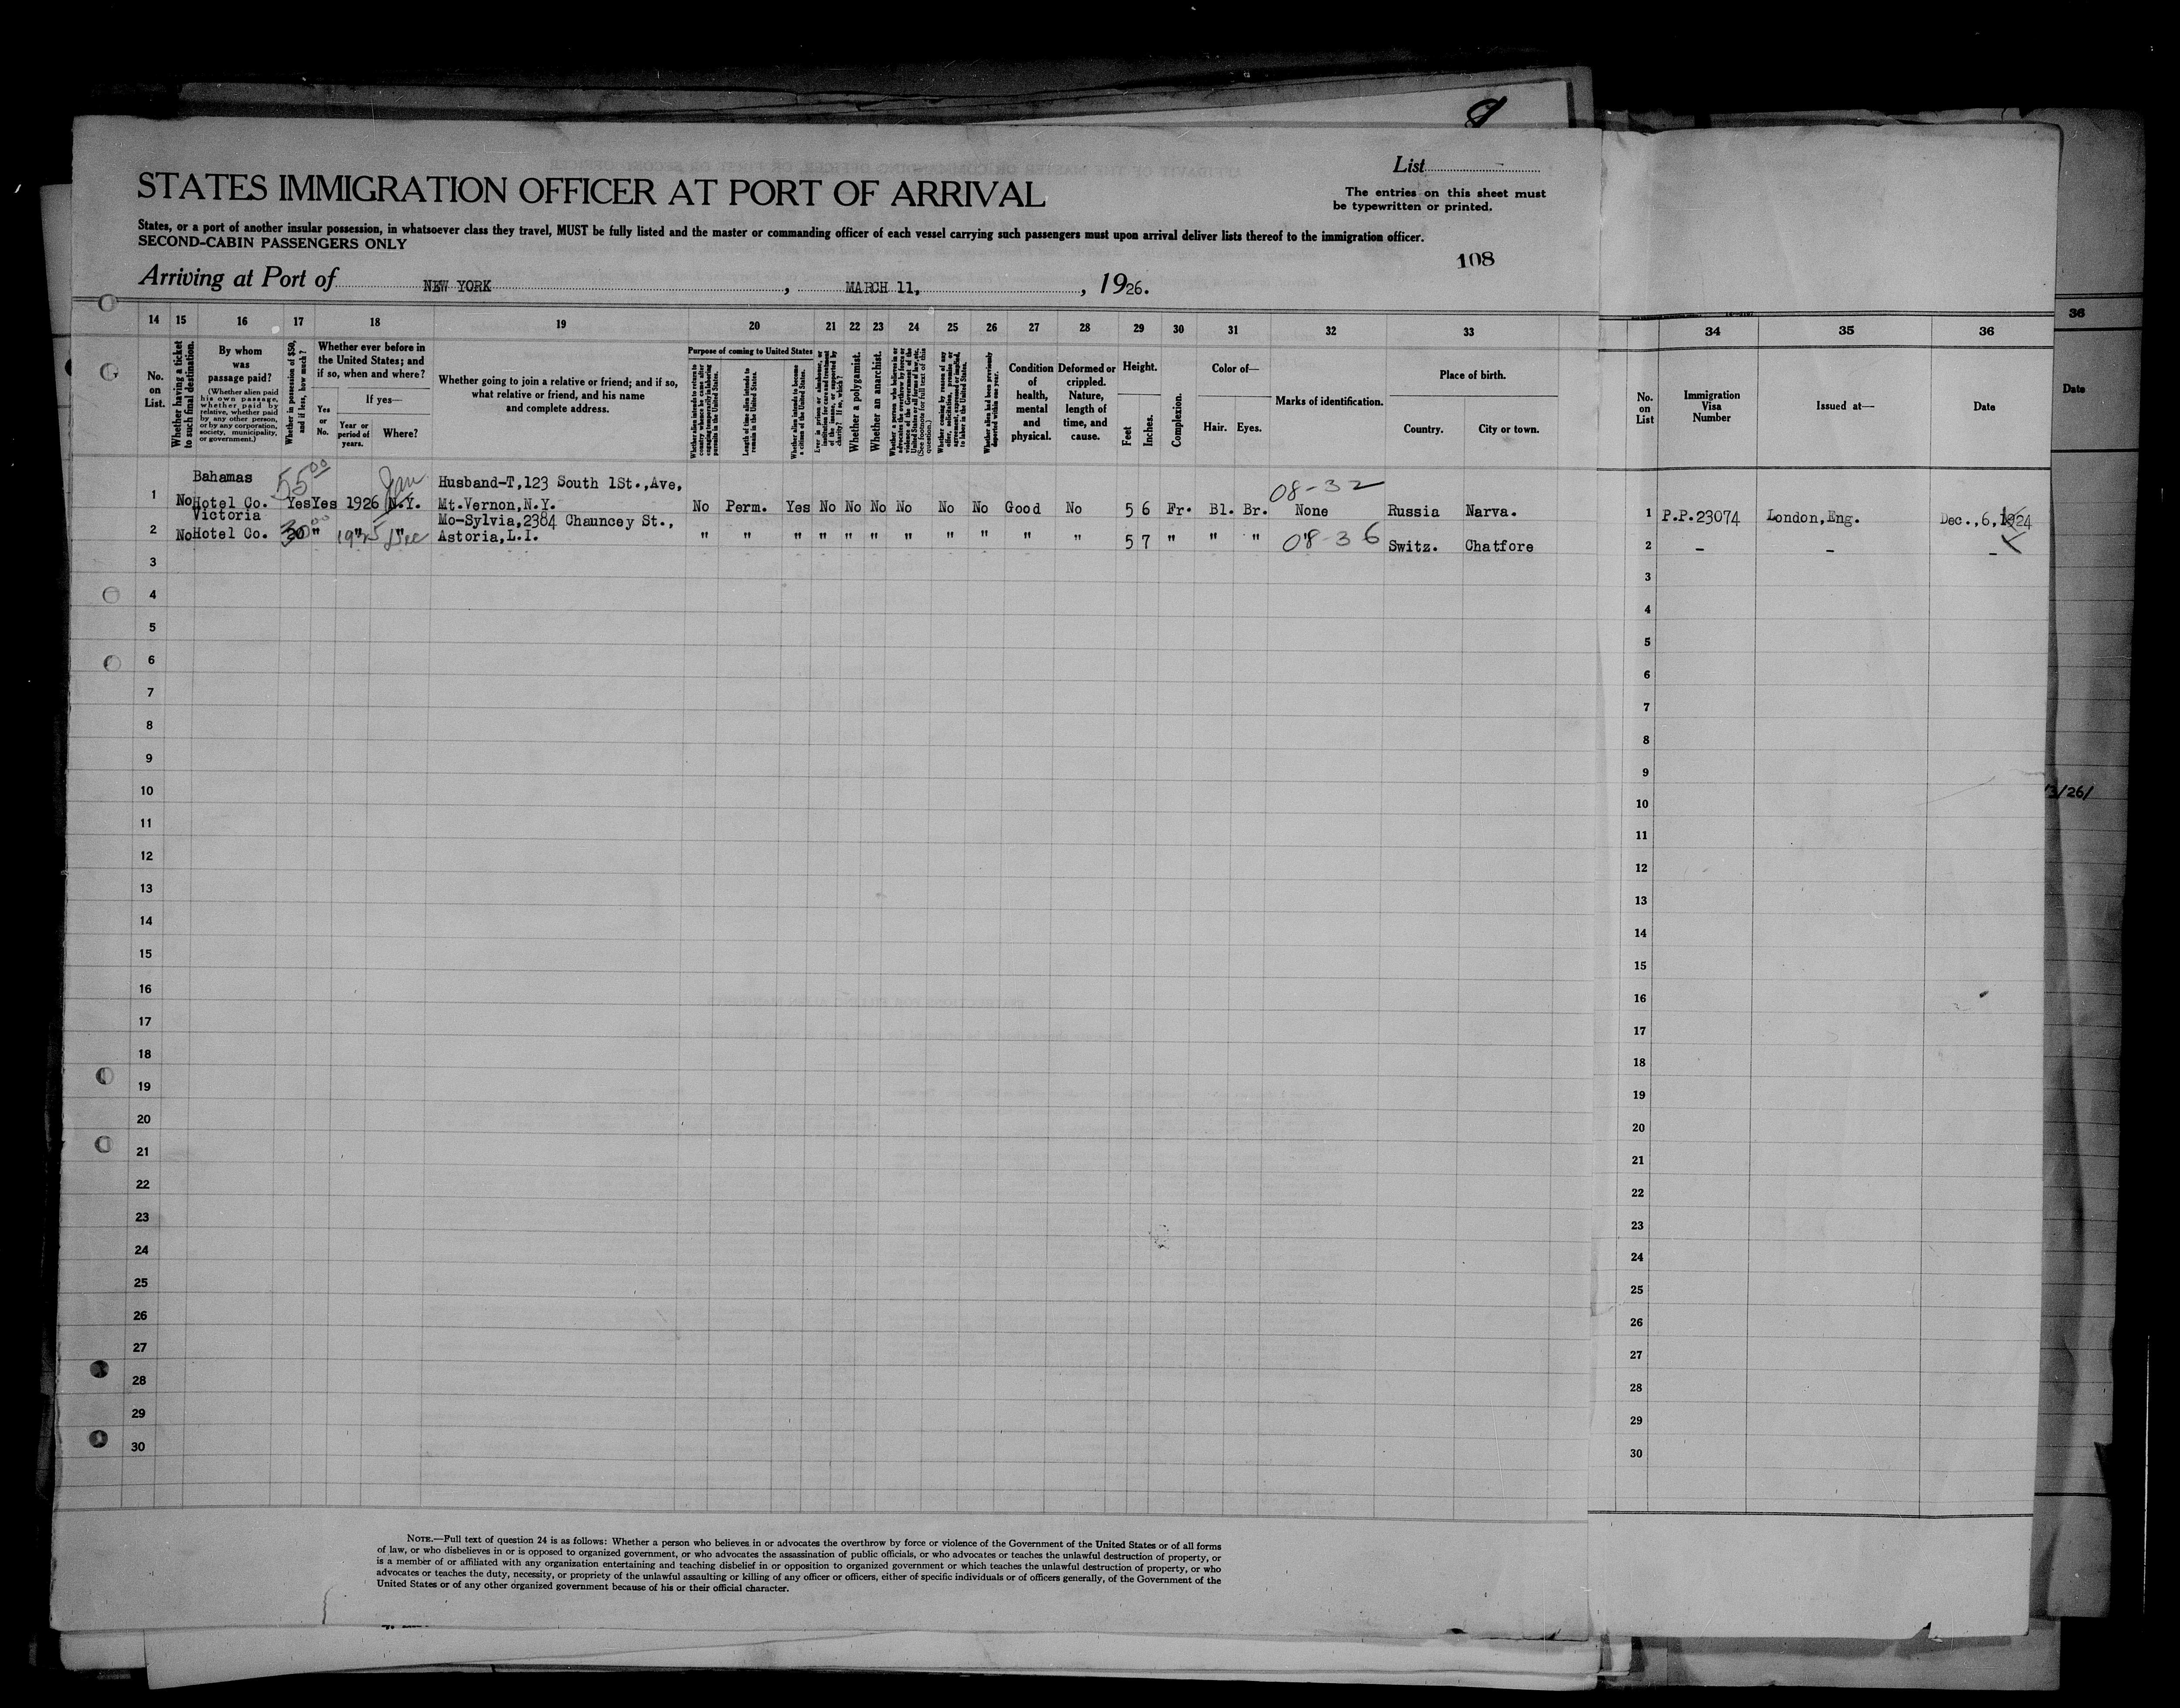 List
STATES IMMIGRATION OFFICER AT PORT OF ARRIVAL
The entries on this sheet must
be typewritten or printed.
States, or a port of another insular possession, in whatsoever class they travel, MUST be fully listed and the master or commanding officer of each vessel carrying such passengers must upon arrival deliver lists thereof to the immigration officer.
SECOND-CABIN PASSENGERS ONLY
108
Arriving at Port of NEW YORK, MARCH 11, , 1926.
14 15 16 17 18 19 20 21 22 23 24 25 26 27 28 29 30 31 32 33 34 35 36
36
No. on List.
Whether having a ticket to such final destination.
By whom was passage paid?
(Whether alien paid his own passage, whether paid by relative, whether paid by any other person, or by any corporation, society, municipality, or government.)
Whether in possession of $50, and if less, how much?
Whether ever before in the United States; and if so, when and where?
Yes or No.
If yes—
Year or period of years.
Where?
Whether going to join a relative or friend; and if so, what relative or friend, and his name and complete address.
Purpose of coming to United States
Length of time alien intends to remain in the United States.
Whether alien intends to become a citizen of the United States.
Whether a polygamist.
Whether an anarchist.
Whether alien had been previously deported within one year.
Condition of health, mental and physical.
Deformed or crippled. Nature, length of time, and cause.
Height.
Feet
Inches.
Complexion.
Color of—
Hair. Eyes.
Marks of identification.
Place of birth.
Country. City or town.
No. on List
Immigration Visa Number
Issued at—
Date
Date
Bahamas 55 00 Jan Husband-T,123 South 1St.,Ave, 08-32
1 No Hotel Co. Yes Yes 1926 N.Y. Mt.Vernon,N.Y. No Perm. Yes No No No No No No Good No 5 6 Fr. Bl. Br. None Russia Narva. 1 P.P.23074 London,Eng. Dec.,6,1924
Victoria Mo-Sylvia,2384 Chauncey St.,
2 No Hotel Co. 30 00 " 1925 Dec Astoria,L.I. " " " " " " " " " " " 5 7 " " " 08-36 Switz. Chatfore 2 - - -
3 3
4 4
5 5
6 6
7 7
8 8
9 9
10 10
3/26/
11 11
12 12
13 13
14 14
15 15
16 16
17 17
18 18
19 19
20 20
21 21
22 22
23 23
24 24
25 25
26 26
27 27
28 28
29 29
30 30
NOTE.—Full text of question 24 is as follows: Whether a person who believes in or advocates the overthrow by force or violence of the Government of the United States or of all forms
of law, or who disbelieves in or is opposed to organized government, or who advocates the assassination of public officials, or who advocates or teaches the unlawful destruction of property, or
is a member of or affiliated with any organization entertaining and teaching disbelief in or opposition to organized government or which teaches the unlawful destruction of property, or who
advocates or teaches the duty, necessity, or propriety of the unlawful assaulting or killing of any officer or officers, either of specific individuals or of officers generally, of the Government of the
United States or of any other organized government because of his or their official character.